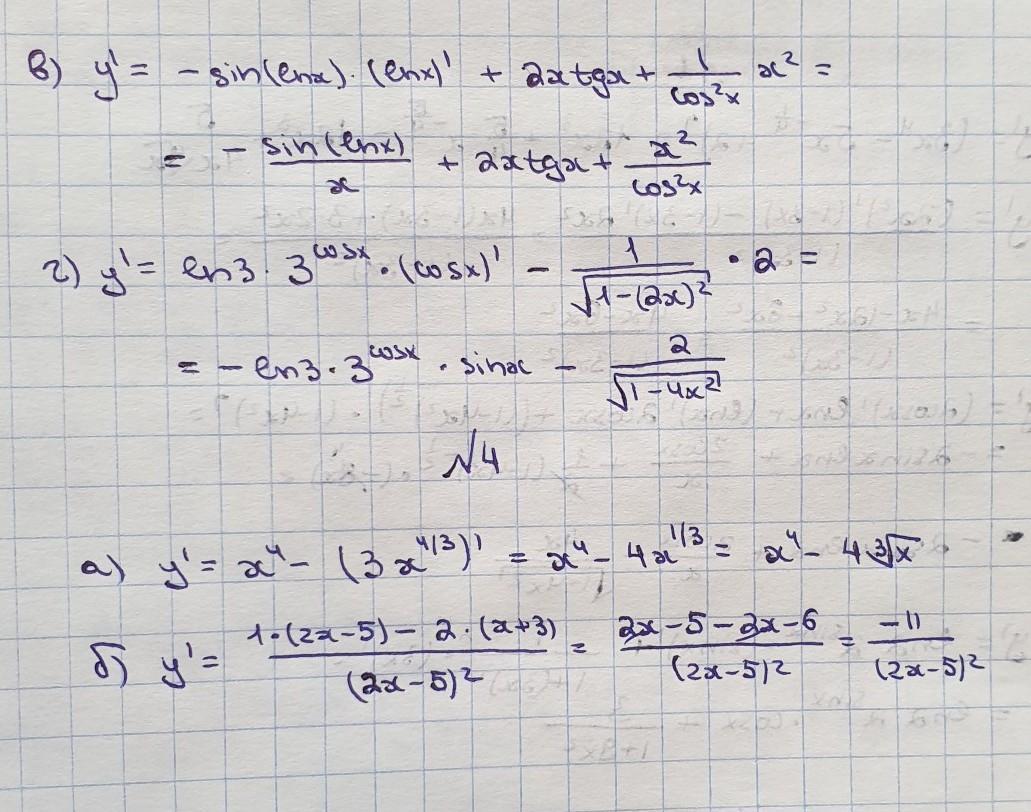 в) y' = - sin(lnx) · (lnx)' + 2x tgx + 1/cos²x x² =
= - sin(lnx)/x + 2x tgx + x²/cos²x
г) y' = ln3 · 3^cosx · (cosx)' - 1/√(1-(2x)²) · 2 =
= - ln3 · 3^cosx · sinx - 2/√(1-4x²)
№4
а) y' = x⁴ - (3x^(4/3))' = x⁴ - 4x^(1/3) = x⁴ - 4∛x
б) y' = (1·(2x-5) - 2·(x+3))/(2x-5)² = (2x-5-2x-6)/(2x-5)² = -11/(2x-5)²